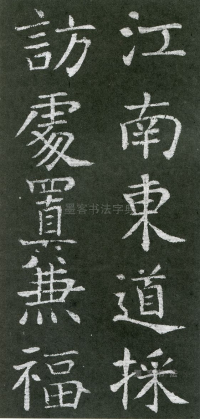 江南東道採
訪處置兼福
墨客书法字